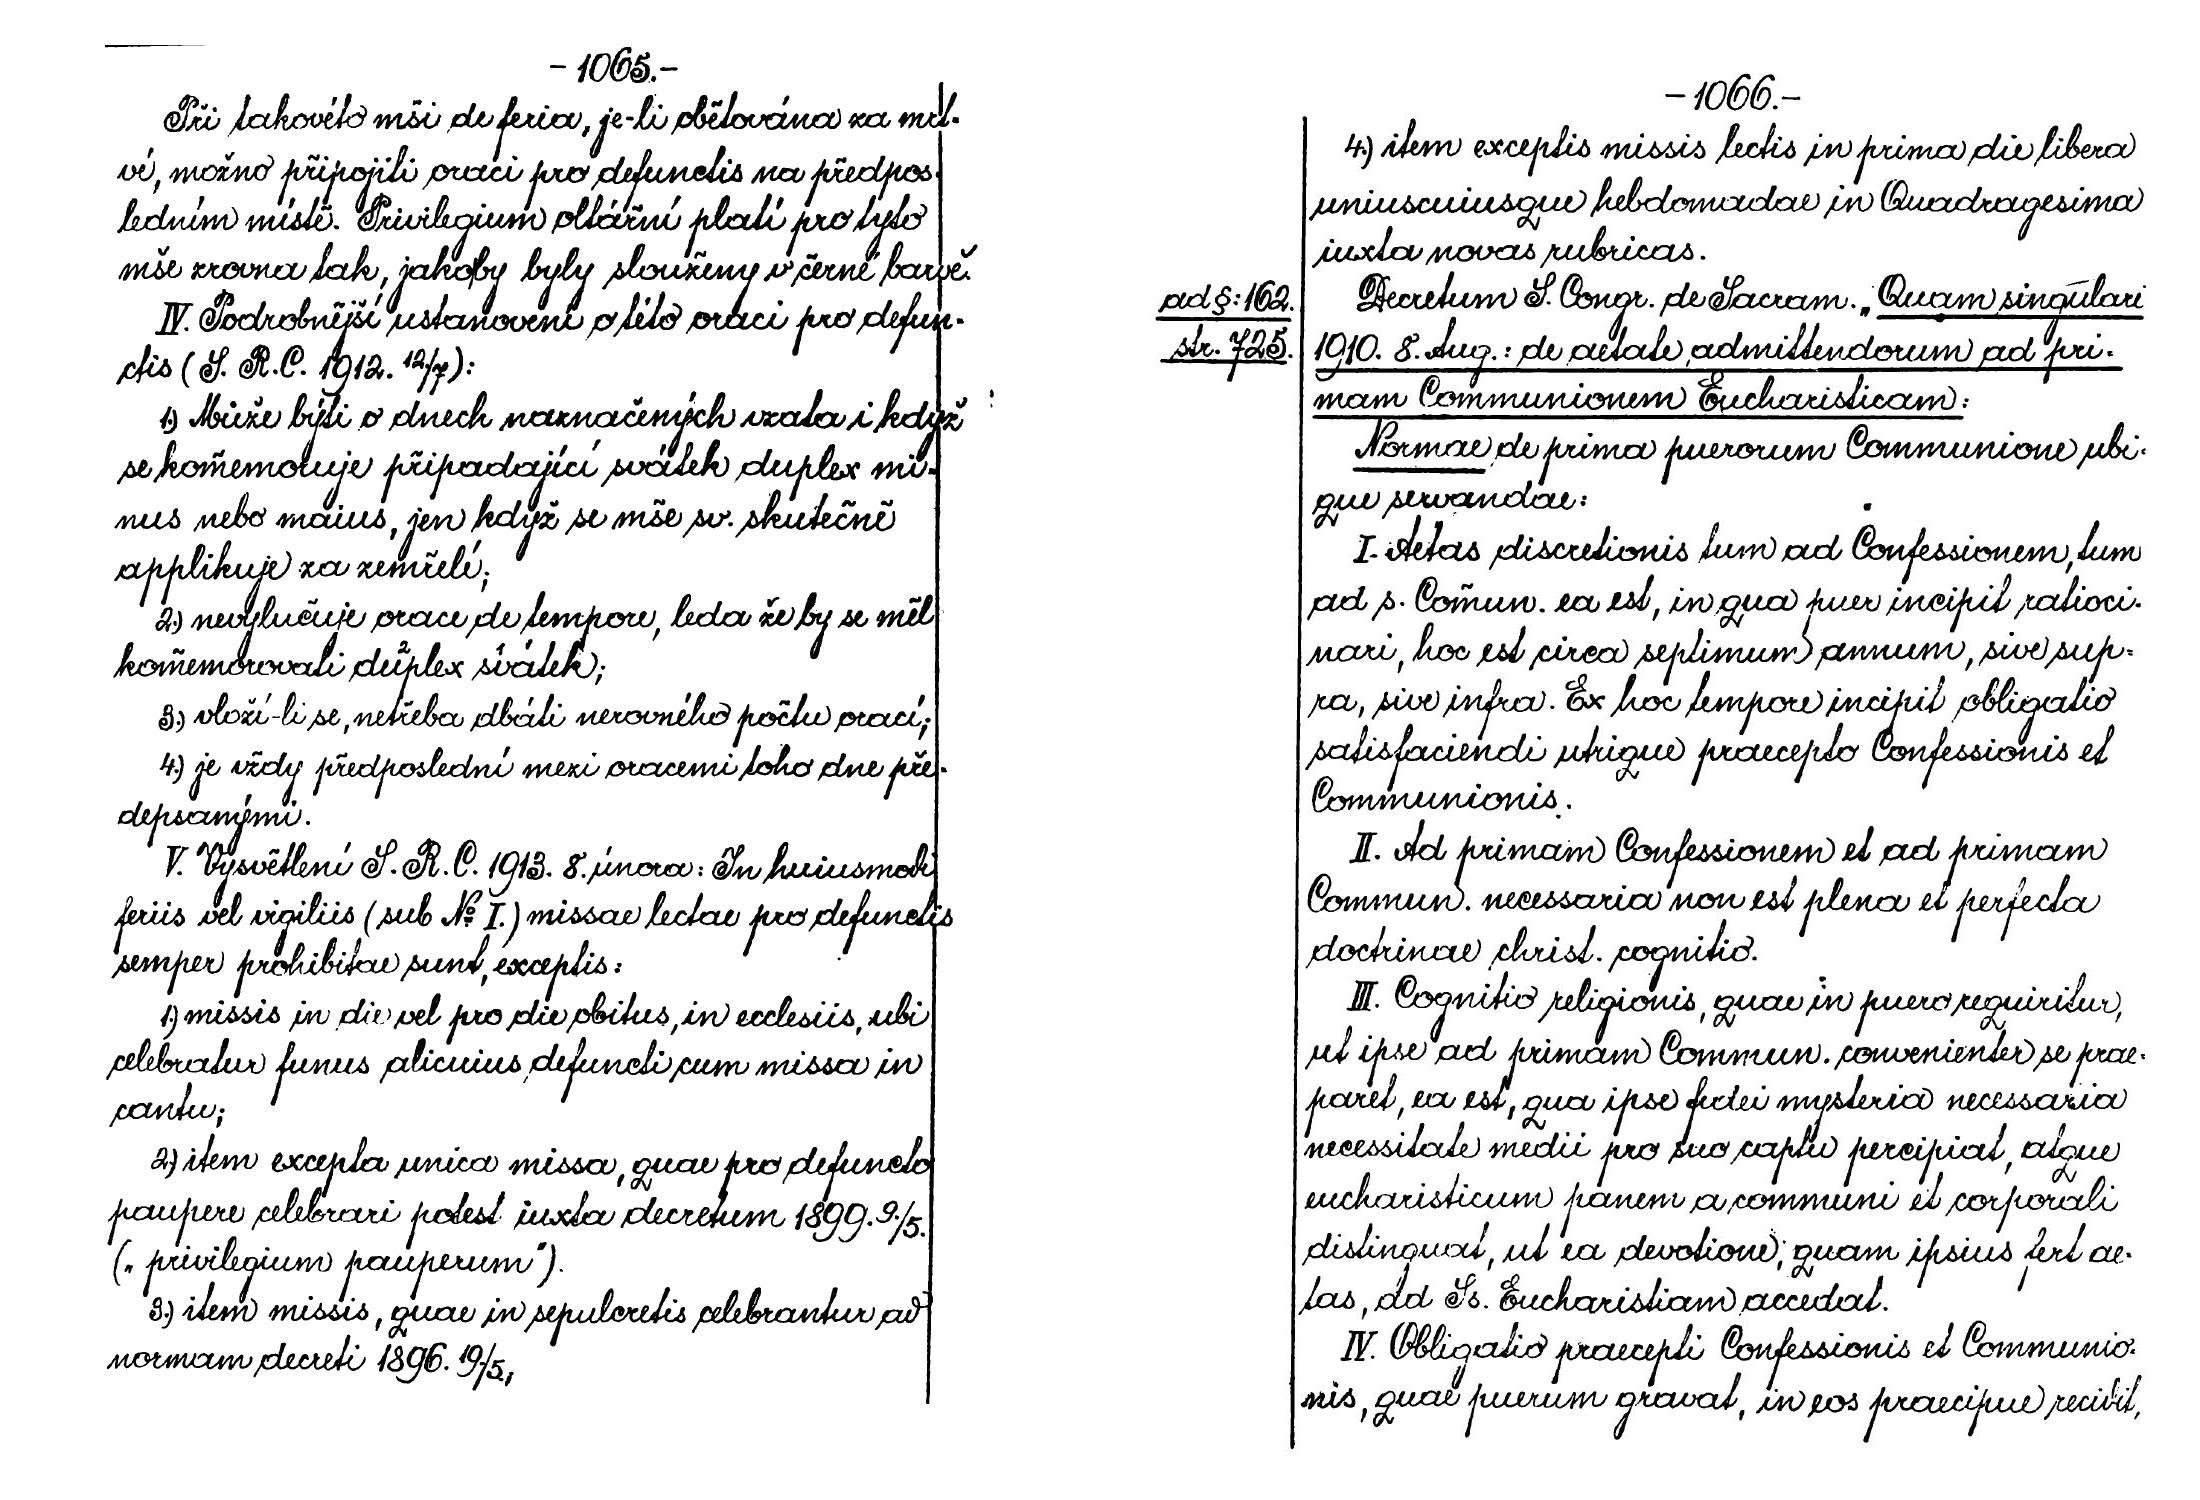 - 1065.-
Při takovéto mši de feria, je-li obětována za mrt-
vé, možno připojiti oraci pro defunctis na předpos-
ledním místě. Privilegium oltářní platí pro tyto
mše zrovna tak, jakoby byly slouženy v černé barvě.
IV. Podrobnější ustanovení o této oraci pro defun-
ctis (S. R. C. 1912. 12/7):
1.) Může býti o dnech naznačených vzata i když
se kom̃emoruje připadající svátek duplex mi-
nus nebo maius, jen když se mše sv. skutečně
applikuje za zemřelé;
2.) nevylučuje orace de tempore, leda že by se měl
kom̃emorovati duplex svátek;
3.) vloží-li se, netřeba dbáti nerovného počtu orací;
4.) je vždy předposlední mezi oracemi toho dne pře-
depsanými.
V. Vysvětlení S. R. C. 1913. 8. února: In huiusmodi
feriis vel vigiliis (sub No I.) missae lectae pro defunctis
semper prohibitae sunt, exceptis:
1.) missis in die vel pro die obitus, in ecclesiis, ubi
celebratur funus alicuius defuncti cum missa in
cantu;
2.) item excepta unica missa, quae pro defuncto
paupere celebrari potest iuxta decretum 1899. 9./5.
(„privilegium pauperum").
3.) item missis, quae in sepulcretis celebrantur ad
normam decreti 1896. 19./5.,
- 1066.-
4.) item exceptis missis lectis in prima die libera
uniuscuiusque hebdomadae in Quadragesima
iuxta novas rubricas.
ad §: 162.
str. 725.
Decretum S. Congr. de Sacram. „Quam singulari
1910. 8. Aug.: de aetate admittendorum ad pri-
mam Communionem Eucharisticam:
Normae de prima puerorum Communione ubi-
que servandae:
I. Aetas discretionis tum ad Confessionem, tum
ad s. Com̃un. ea est, in qua puer incipit ratioci-
nari, hoc est circa septimum annum, sive sup-
ra, sive infra. Ex hoc tempore incipit obligatio
satisfaciendi utrique praecepto Confessionis et
Communionis.
II. Ad primam Confessionem et ad primam
Commun. necessaria non est plena et perfecta
doctrinae christ. cognitio.
III. Cognitio religionis, quae in puero requiritur,
ut ipse ad primam Commun. convenienter se prae-
paret, ea est, qua ipse fidei mysteria necessaria
necessitate medii pro suo captu percipiat, atque
eucharisticum panem a communi et corporali
distinguat, ut ea devotione, quam ipsius fert ae-
tas, ad Ss. Eucharistiam accedat.
IV. Obligatio praecepti Confessionis et Communio-
nis, quae puerum gravat, in eos praecipue recidit,